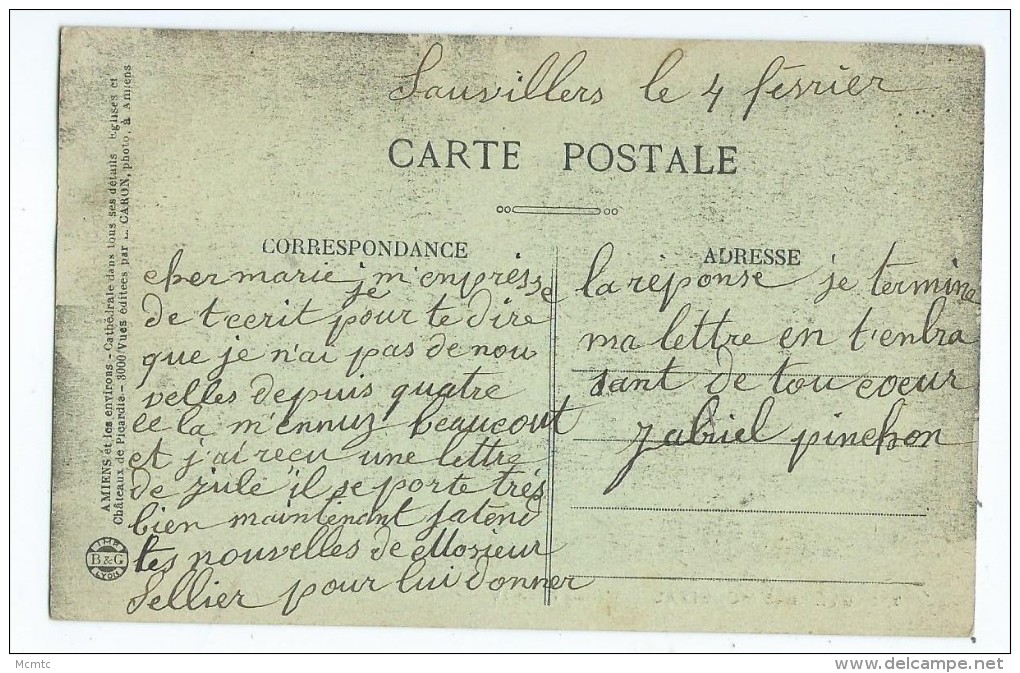 Sauvillers le 4 février
CARTE POSTALE
CORRESPONDANCE
cher marie j m'enprèsse
je
de t'ecrit pour te dire
que je n'ai pas de nou
velles depuis quatre
ce la m'ennuz beaucout
et j'ai recu une lettre
de jule il se porte très
bien maintenant jatend
tes nouvelles de Mosieur
Sellier pour lui donner
ADRESSE
la réponse je termine
ma lettre en t'enbra
sant de tou coeur
gabriel pinchon
AMIENS et les environs - Cathédrale dans tous ses détails Eglises et
Châteaux de Picardie - 3000 Vues éditées par L. CARON, photo, à Amiens
IMP
B & G
LYON
Mcmtc
www.delcampe.net